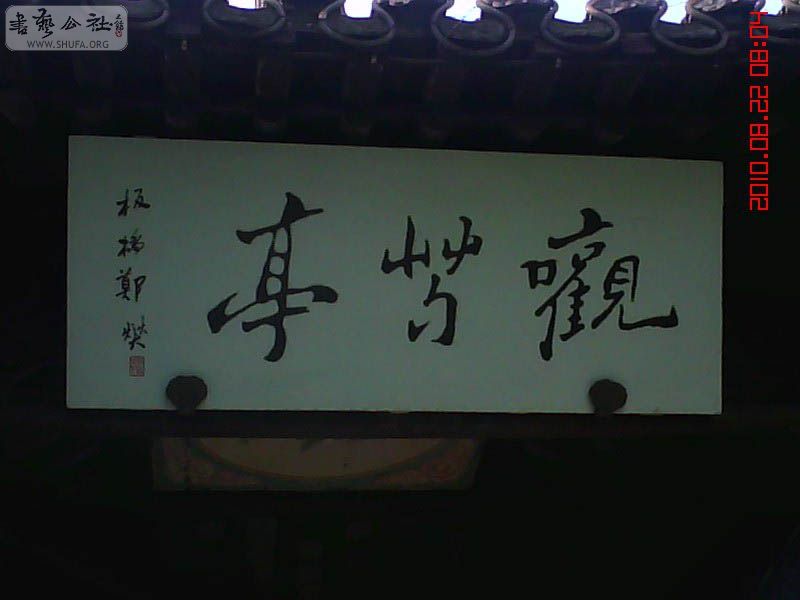 書藝公社
WWW.SHUFA.ORG
2010.08.22 08:04
觀芍亭
板橋鄭燮